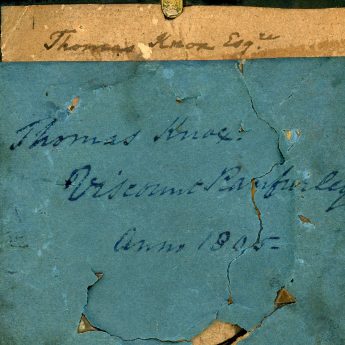 Thomas Knox Esqre
Thomas Knox.
Viscount Ranfurley
Anno 1805